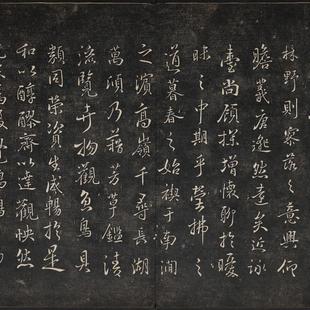 林野則寥落之意興仰
瞻羲唐邈然遠矣近詠
臺尚顧探增懷聊於曖
昧之中期乎瑩拂之
道暮春之始禊于南澗
之濱高嶺千尋長湖
萬頃乃藉芳草鑑清
流覽卉物觀魚鳥具
類同榮資生咸暢於是
和以醇醪齊以達觀怏然